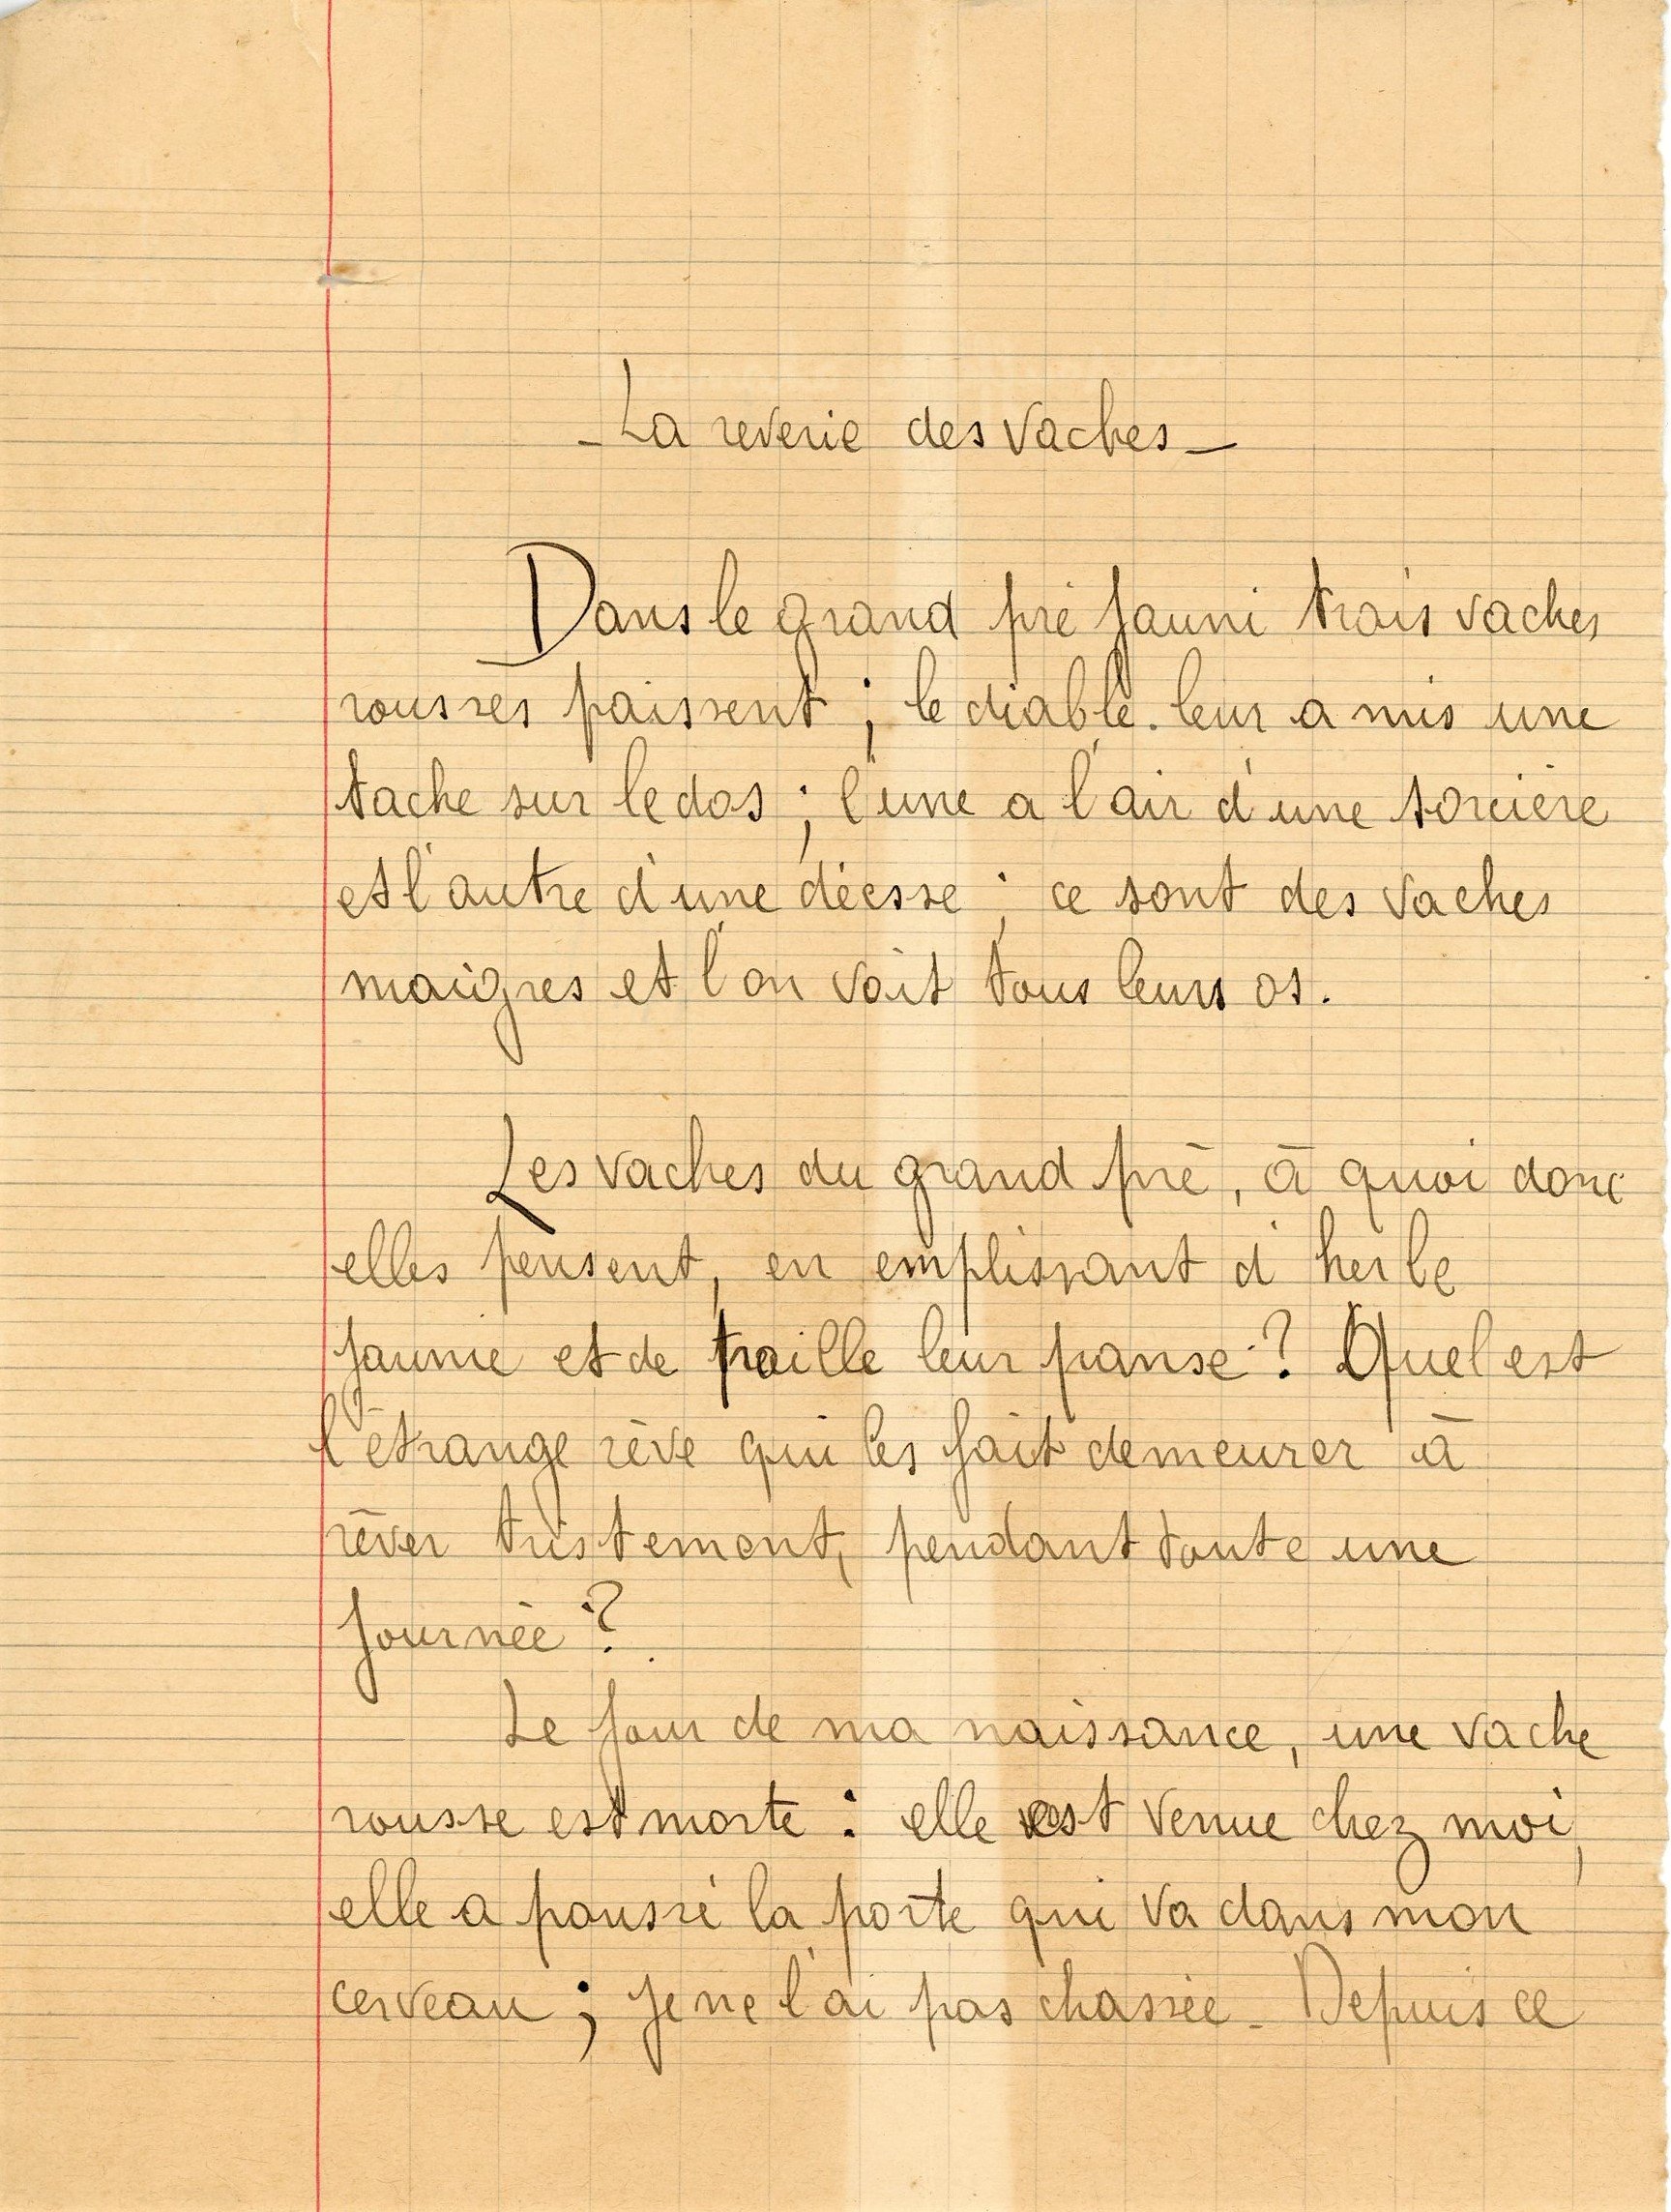 - La reverie des vaches -
Dans le grand pré jauni trois vaches
rousses paissent ; le diable. leur a mis une
tache sur le dos ; l'une a l'air d'une sorcière
et l'autre d'une déesse ; ce sont des vaches
maigres et l'on voit tous leurs os.
Les vaches du grand pré, à quoi donc
elles pensent, en emplissant d'herbe
jaunie et de paille leur panse ? Quel est
l'étrange rêve qui les fait demeurer à
rêver tristement, pendant toute une
journée ?
Le jour de ma naissance, une vache
rousse est morte : elle est venue chez moi,
elle a poussé la porte qui va dans mon
cerveau ; je ne l'ai pas chassée. Depuis ce